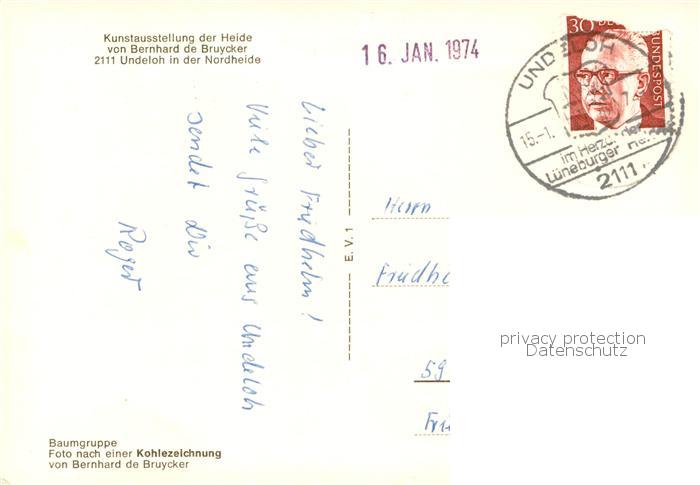 Kunstausstellung der Heide
von Bernhard de Bruycker
2111 Undeloh in der Nordheide
16. JAN. 1974
30 DEUTSCHE BUNDESPOST
UNDELOH
15.-1.
im Herzen der
Lüneburger Heide
2111
Lieber Friedhelm!
Viele Grüße aus Undeloh
sendet Dir
Roger
E.V.1
Herrn
Friedhe
59
Fri
privacy protection
Datenschutz
Baumgruppe
Foto nach einer Kohlezeichnung
von Bernhard de Bruycker